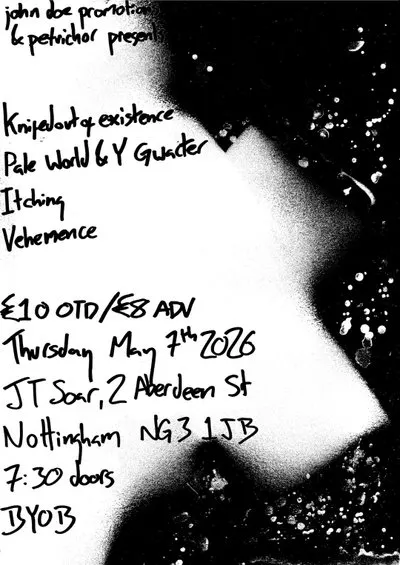 john doe promotions
& petrichor presents
Knifedoutof existence
Pale World & Y Gwacter
Itching
Vehemence
£10 OTD/£8 ADV
Thursday May 7th 2026
JT Soar, 2 Aberdeen St
Nottingham NG3 1JB
7:30 doors
BYOB